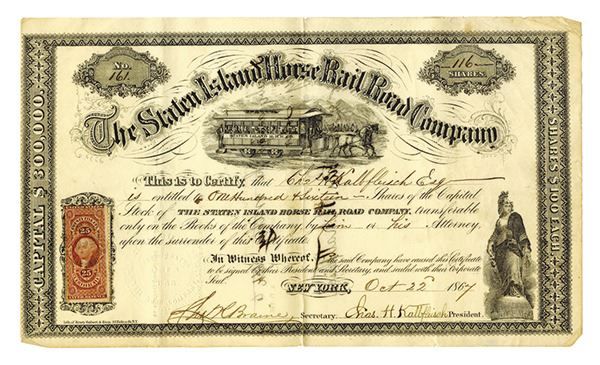 No. 161.
116 SHARES.
The Staten Island Horse Rail Road Company
STATEN ISLAND H.R.R.
CAPITAL $300,000.
SHARES $100 EACH.
This is to Certify, that Chas H Kalbfleisch Esq
is entitled to One Hundred & Sixteen Shares of the Capital
Stock of THE STATEN ISLAND HORSE RAIL ROAD COMPANY, transferable
only on the Books of the Company by him or his Attorney
upon the surrender of this Certificate.
In Witness Whereof, the said Company have caused this Certificate
to be signed by their President and Secretary, and sealed with their Corporate
Seal.
NEW YORK, Oct 22d 1867
Braine, Secretary. Chas. H. Kalbfleisch President.
25 25